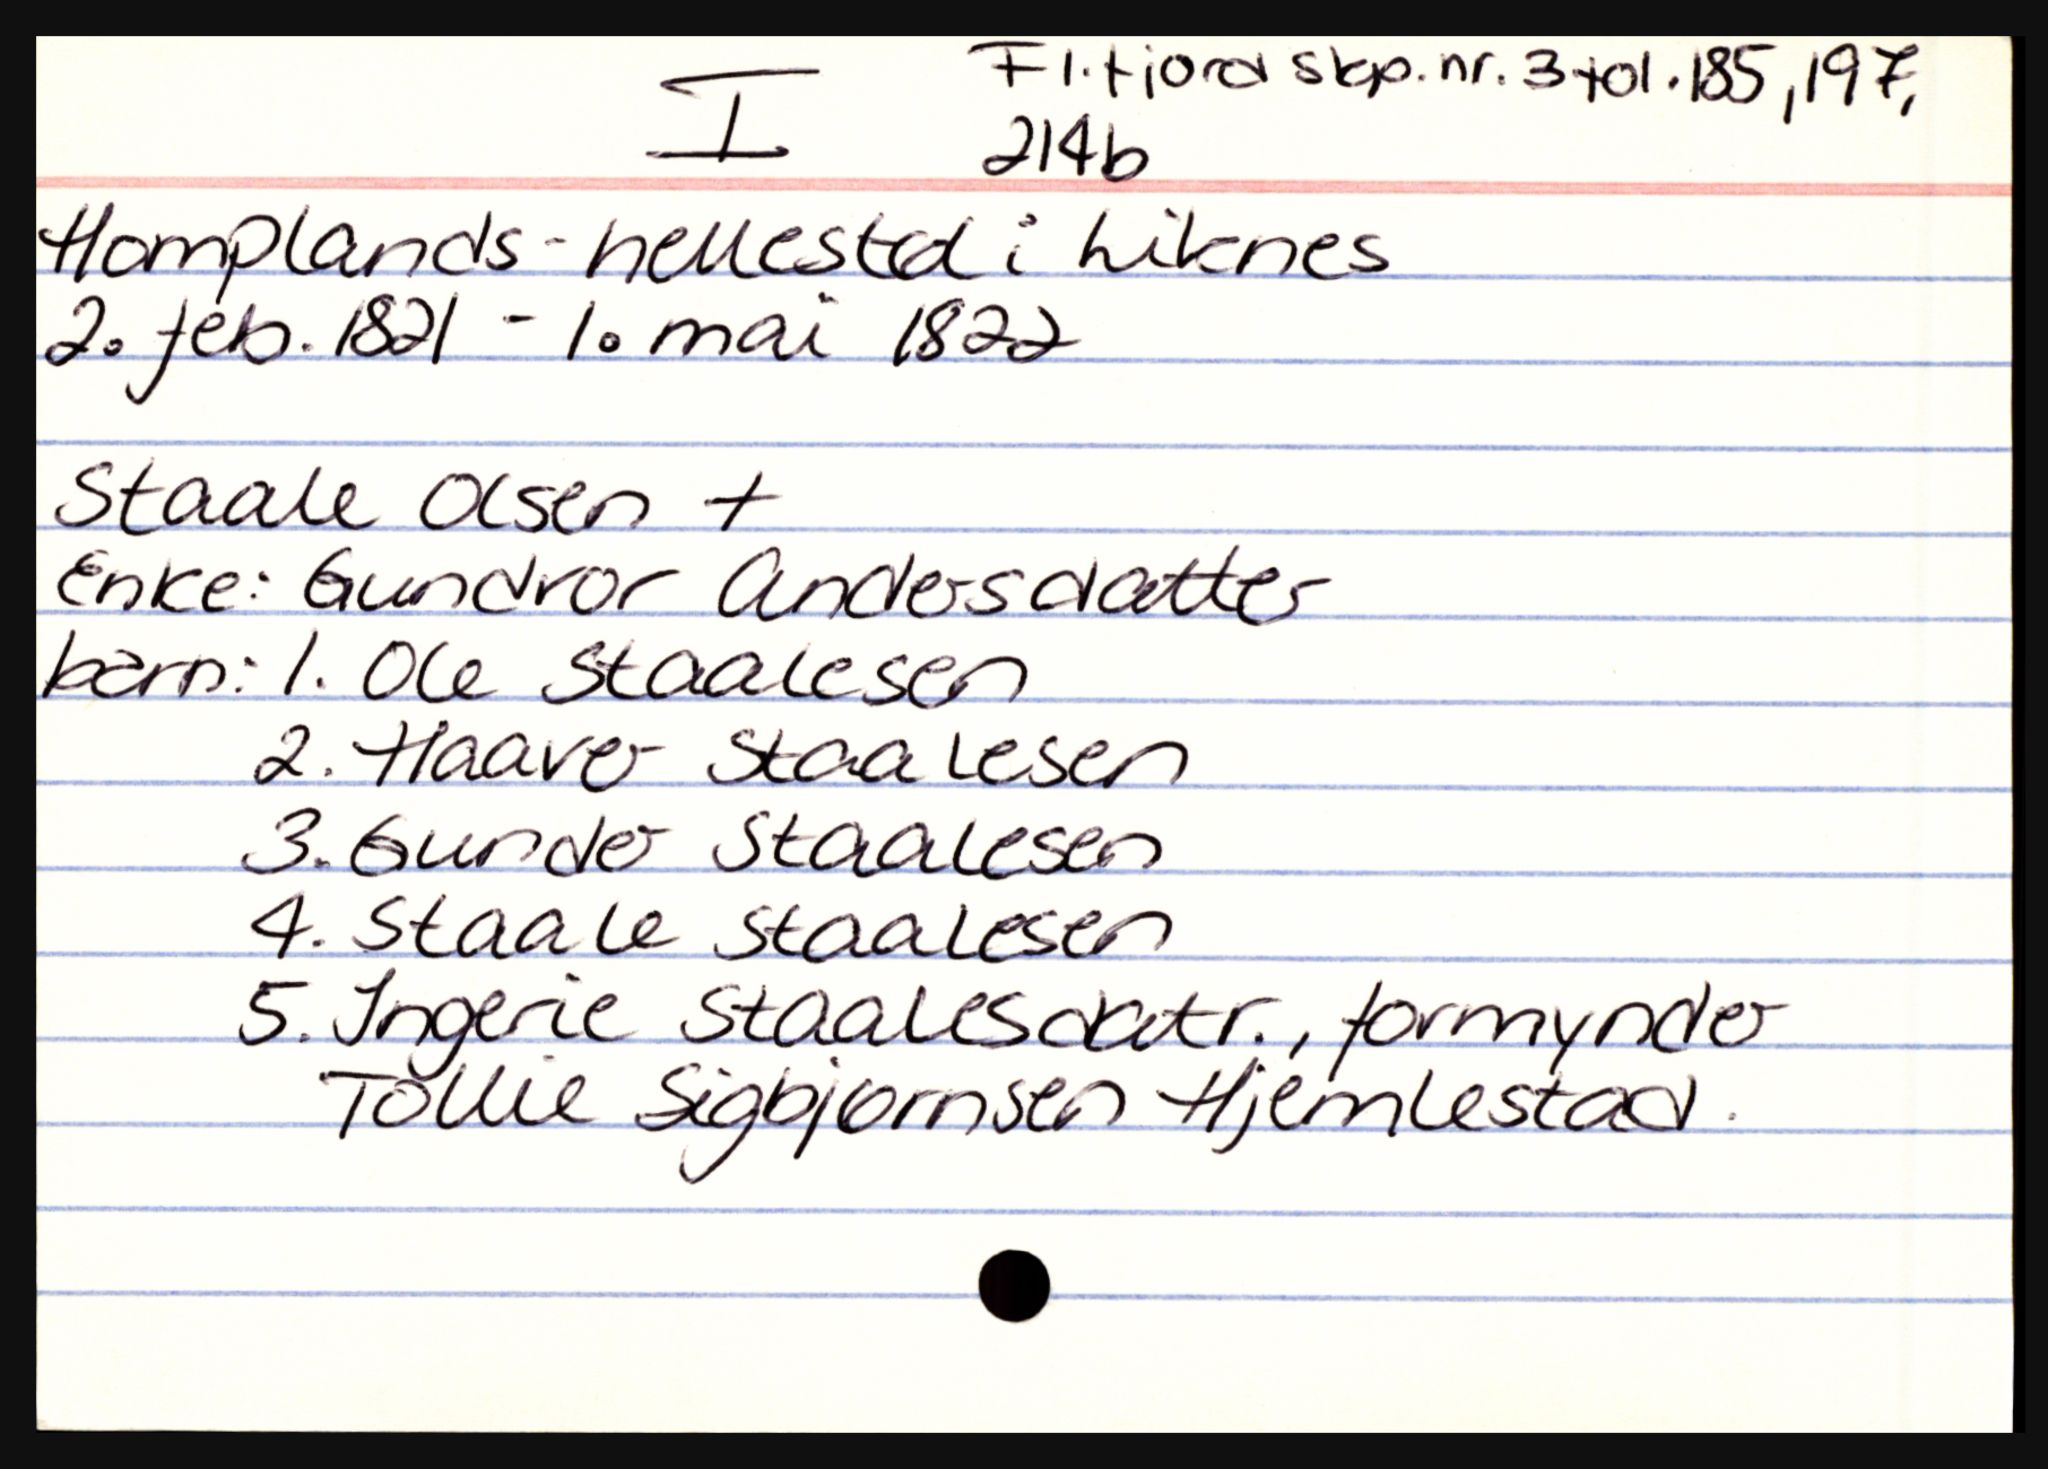 I Fl.fjord skp. nr. 3 fol. 185, 197,
214b
Homplands-hellestd i Liknes
2. feb. 1821 - 1. mai 1822
Staale Olsen +
Enke: Gundvor Andersdatter
barn: 1. Ole Staalesen
2. Haaver Staalesen
3. Gunder Staalesen
4. Staale Staalesen
5. Ingerie Staalesdatr., formynder
Tollie Sigbjørnsen Hjemlestad.